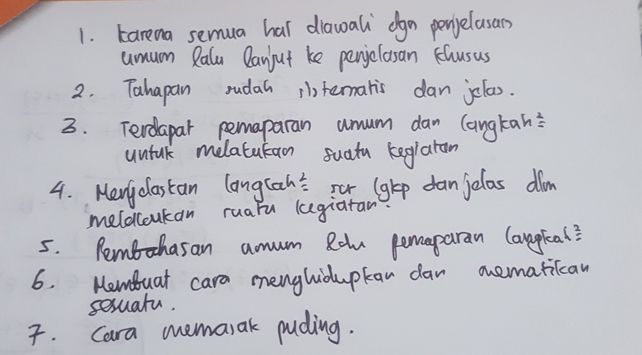 1. karena semua hal diawali dgn penjelasan
umum lalu lanjut ke penjelasan khusus
2. Tahapan sudah sistematis dan jelas.
3. Terdapat pemaparan umum dan langkah²
untuk melakukan suatu kegiatan
4. Menjelaskan langkah² scr lgkp dan jelas dlm
melakukan suatu kegiatan.
5. Pembahasan umum lalu pemaparan langkah²
6. Membuat cara menghidupkan dan mematikan
sesuatu.
7. Cara memasak puding.